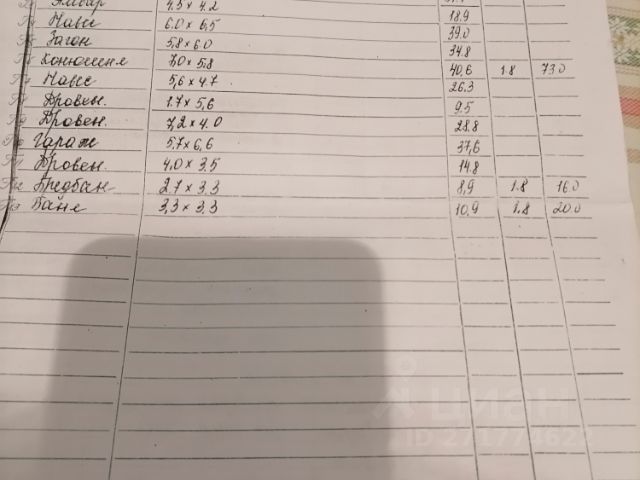 Амбар 4.5 x 4.2 18.9
Навес 6.0 x 6,5 39.0
Загон 5,8 x 6.0 34.8
Конюшня 7.0 x 5.8 40,6 1.8 73.0
Навес 5,6 x 4.7 26.3
Дровен. 1.7 x 5,6 9.5
Дровен. 7,2 x 4.0 28.8
Гараж 5,7 x 6,6 37,6
Дровен. 4.0 x 3.5 14.8
Предбан 2.7 x 3.3 8,9 1.8 16.0
Баня 3,3 x 3.3 10,9 1.8 20.0
циан
ID 271774622